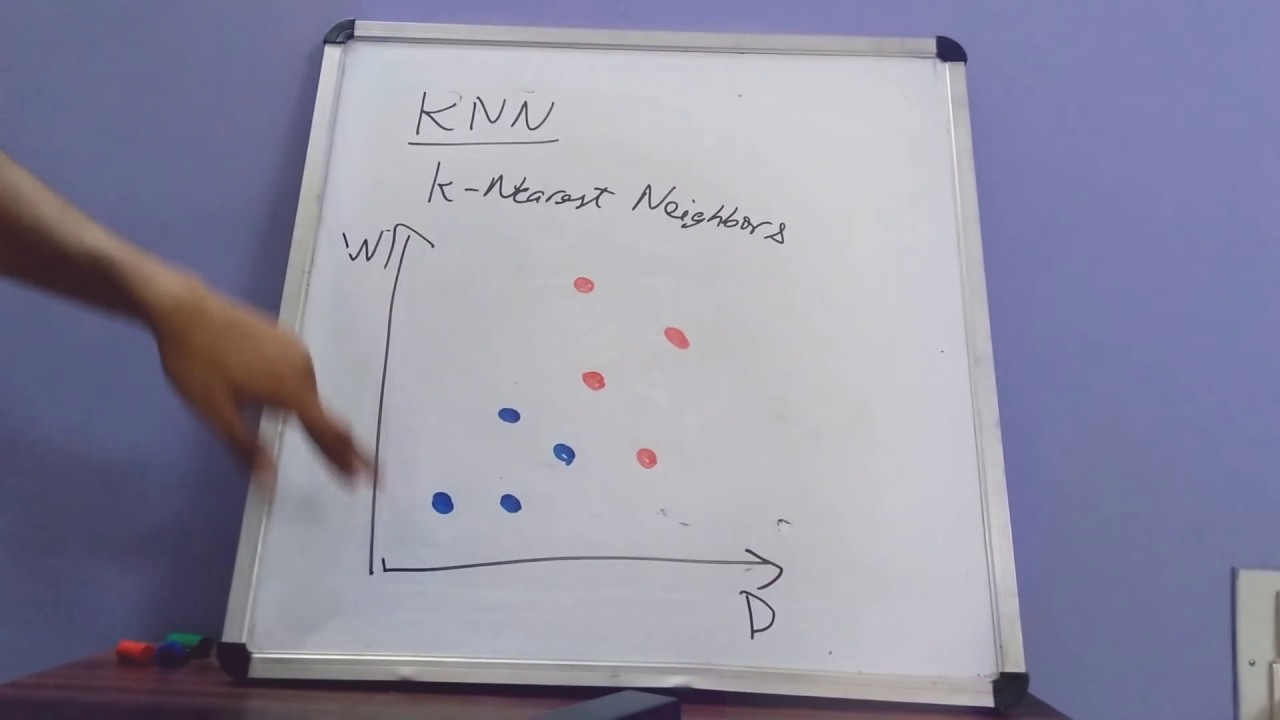 KNN
k-Nearest Neighbors
W
D